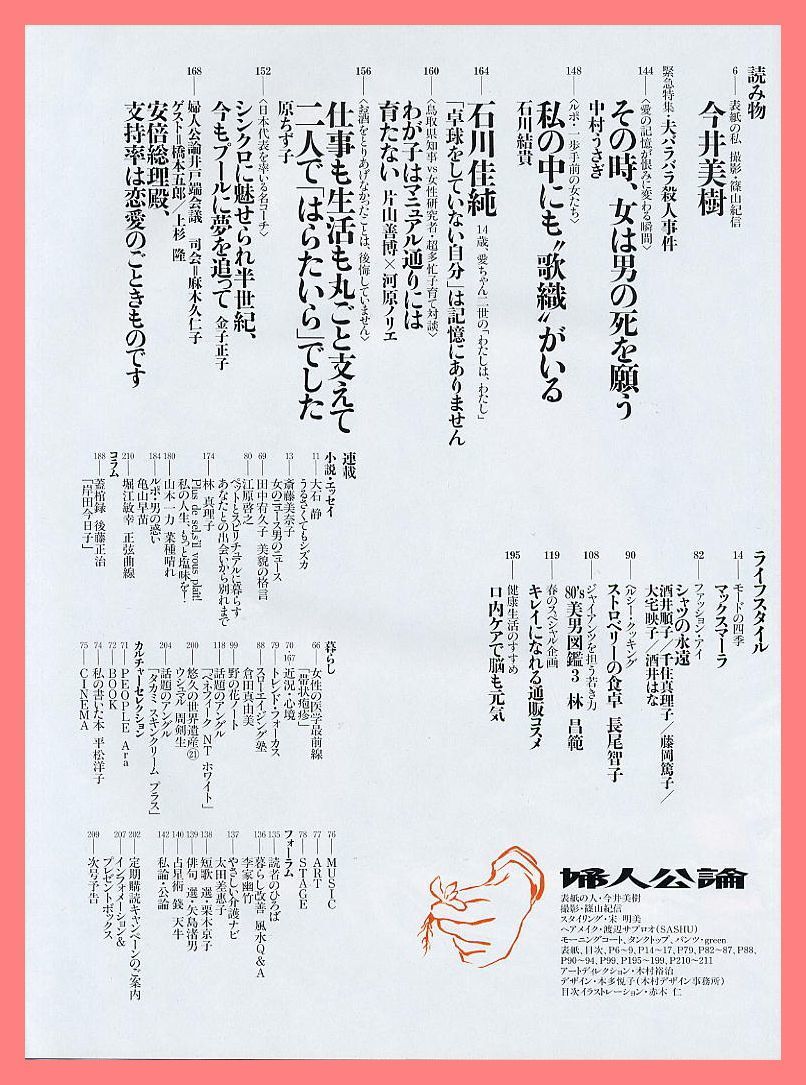 読み物
6
表紙の私 撮影・篠山紀信
今井美樹
緊急特集・夫バラバラ殺人事件
144
〈愛の記憶が恨みに変わる瞬間〉
その時、女は男の死を願う
中村うさぎ
148
〈ルポ・一歩手前の女たち〉
私の中にも〝歌織〟がいる
石川結貴
164
石川佳純 14歳、愛ちゃん二世の「わたしは、わたし」
「卓球をしていない自分」は記憶にありません
160
〈鳥取県知事vs女性研究者・超多忙子育て対談〉
わが子はマニュアル通りには
育たない 片山善博×河原ノリエ
156
〈お酒をとりあげなかったことは、後悔していません〉
仕事も生活も丸ごと支えて
二人で「はらたいら」でした
原ちず子
152
〈日本代表を率いる名コーチ〉
シンクロに魅せられ半世紀、
今もプールに夢を追って 金子正子
168
婦人公論井戸端会議 司会=麻木久仁子
ゲスト=橋本五郎/上杉 隆
安倍総理殿、
支持率は恋愛のごときものです
ライフスタイル
14
モードの四季
マックスマーラ
82
ファッション・アイ
シャツの永遠
酒井順子/千住真理子/藤岡篤子/
大宅映子/酒井はな
90
ヘルシー・クッキング
ストロベリーの食卓 長尾智子
108
ジャイアンツを担う若き力
80's美男図鑑3 林 昌範
119
春のスペシャル企画
キレイになれる通販コスメ
195
健康生活のすすめ
口内ケアで脳も元気
連載
小説・エッセイ
11 大石 静
うるさくてもシズカ
13 斎藤美奈子
女のニュース男のニュース
69 田中宥久子 美貌の格言
80 江原啓之
ペットとスピリチュアルに暮らす
あなたとの出会いから別れまで
174 林 真理子
Plus de sel,s'il vous plait!
私の人生、もっと塩味を!
180 山本一力 菜種晴れ
184 ルポ・男の惑い
亀山早苗
210 堀江敏幸 正弦曲線
コラム
188 蓋棺録 後藤正治
「岸田今日子」
暮らし
66 女性の医学最前線
「帯状疱疹」
70・167 近況・心境
79 トレンド・フォーカス
88 スローエイジング塾
倉田真由美
99 野の花ノート
118 話題のアングル
「ベネフィーク NT ホワイト」
200 悠久の世界遺産㉑
ウシュマル 周剣生
204 話題のアングル
「タカミ スキンクリーム プラス」
カルチャーセレクション
71 PEOPLE Ara
72 BOOK
74 私の書いた本 平松洋子
75 CINEMA
76 MUSIC
77 ART
78 STAGE
フォーラム
135 読者のひろば
136 暮らし改善 風水Q&A
李家幽竹
137 やさしい介護ナビ
太田差惠子
138 短歌 選・栗木京子
139 俳句 選・矢島渚男
140 占星術 銭 天牛
142 私論・公論
202 定期購読キャンペーンのご案内
207 インフォメーション&
プレゼントボックス
209 次号予告
婦人公論
表紙の人・今井美樹
撮影・篠山紀信
スタイリング・宋 明美
ヘアメイク・渡辺サブロオ(SASHU)
モーニングコート、タンクトップ、パンツ・green
表紙、目次、P6~9、P14~17、P79、P82~87、P88、
P90~94、P99、P195~199、P210~211
アートディレクション・木村裕治
デザイン・本多悦子(木村デザイン事務所)
目次イラストレーション・赤木 仁